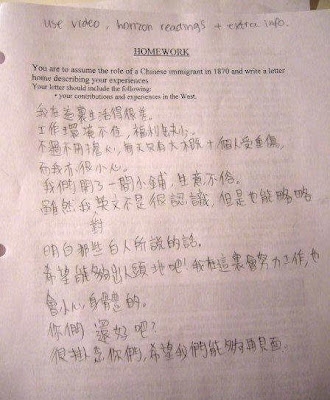 use video, horizon readings + extra info.
HOMEWORK
You are to assume the role of a Chinese immigrant in 1870 and write a letter
home describing your experiences
Your letter should include the following:
• your contributions and experiences in the West.
我在這裏生活得很差。
工作環境不佳，福利又少。
不過不用擔心，每天只有大概十個人受重傷，
而我亦很小心。
我們開了一間小鋪，生意不俗。
雖然我英文不是很認識，但是也能略略
對
明白那些白人所說的話。
希望能夠出人頭地吧！我在這裏會努力工作，也
會小心身體的。
你們還好吧？
很掛念你們，希望我們能夠再見面。